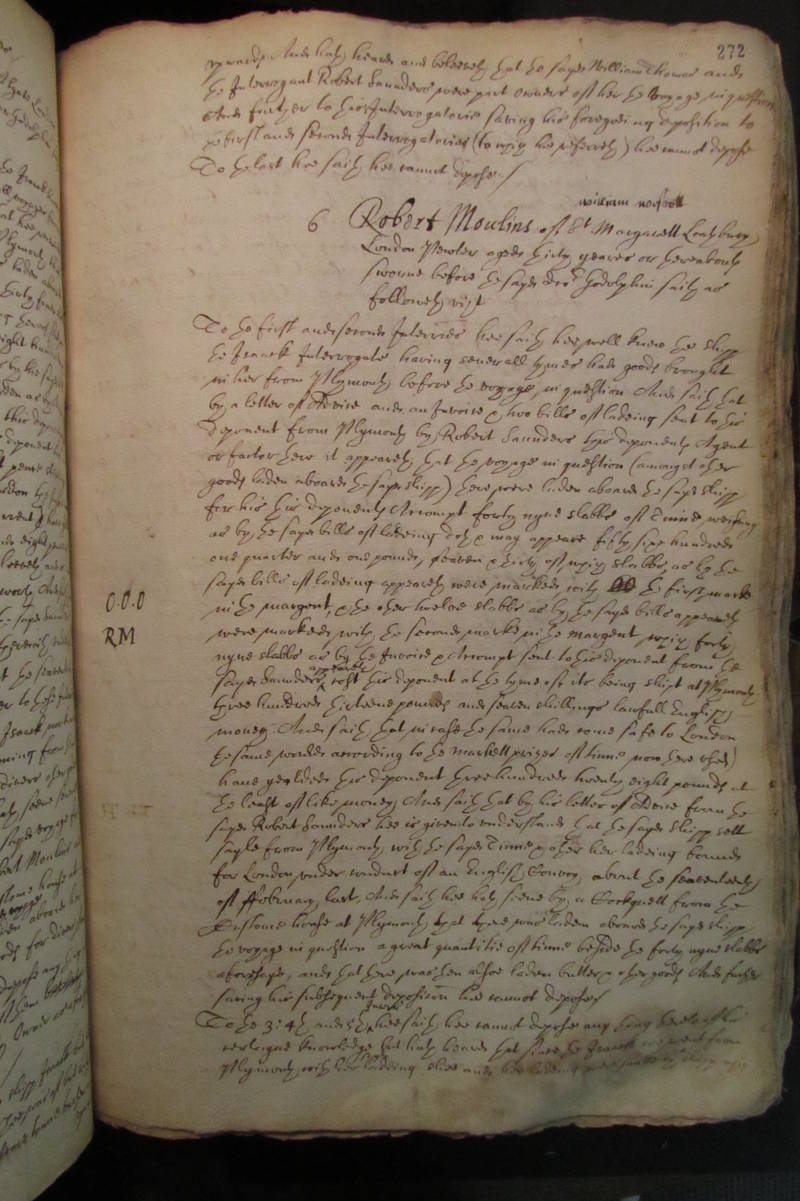 272
upwards And hath heard and beleeveth that the sayd William Thomas and
the Interrogant Robert Saunders were part owners of her the voyage in question
And further to this Interrogatorie saving his foregoeing deposition to
the first and second Interrogatories (to which hee referreth) hee cannot depose
To the last hee saith hee cannot depose./
william
6 Robert Moulins of St Margarett Loathbury
London Pewter aged thirty yeares or thereabouts
sworne before the sayd docr Godolphin saith as
followeth vizt
To the first and second Interries hee saith hee well knew the shipp
the Isaack Interrogate having severall tymes had goods brought
in her from Plymouth before the voyage in question And saith that
by a letter of Advice and an Invoice & two bills of ladeing sent to this
deponent from Plymouth by Robert Saunders this deponents Agent
or factor there it appeareth that the voyage in question (amongst other
goods laden aboard the sayd shipp) there were laden aboard the sayd shipp
for his this deponents Accompt forty nyne slabbs of Tinne weighing
as by the sayd bills of ladeing doth & may appeare fifty sixe hundred
one quarter and one pound, seaven & thirty of which slabbs as by the
sayd bills of ladeing appeareth were marked with the first marke
in the margent, & the other twelve slabbs as by the sayd bills appeareth
were marked with the second marke in the margent which forty
0.0.0
RM
nyne slabbs as by the Invoice & Accompt sent to this deponent from the
sayd Saunders appeareth cost this deponent at the tyme of its being shipt at Plymouth
three hundred thirteene pounds and seaven shillings lawfull English
money. And saith that in case the same had come safe to London
the same would according to the markett prizes of tinne now here
have yeylded this deponent three hundred twenty eight pounds at
the least of like money, And saith that by his letter of Advice from the
sayd Robert Saunders hee is given to understand that the sayd shipp sett
sayle from Plymouth with the sayd Tinne & other her ladeing bound
for London under conduct of an English Convoy about the seaventeenth
of ffebruary last, And saith hee hath seene by a Cockquett from the
Custome house at Plymouth that there was laden aboard the sayd shipp
the voyage in question a great quantitie of tinne beside the forty nyne slabbs
aforesayd, and that there was then alsoe laden butter & other goods And further
saving his subsequent deposition hee cannot depose/
To the 3: 4th and 5th Interries hee saith hee cannot depose any thing thereto of his
certeigne knowledge but hath heard that since the Isaack went from
Plymouth with her ladeing shee and her ladeing were